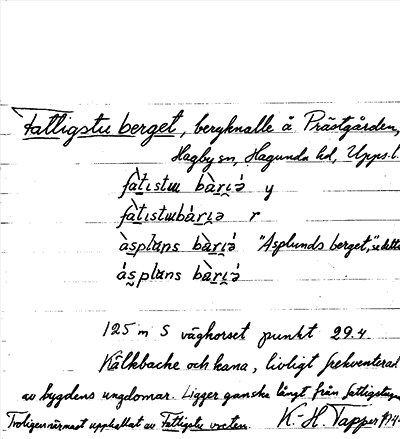 Fattigstu berget, bergknalle å Prästgården,
Hagby sn, Hagunda hd, Upps. l.
fàt̲ıstɯ bàr̲ı̲ǝ́ y
fàt̲ıstɯbàr̲ı̲ǝ r
às̲plɑns bàr̲ı̲ǝ́ "Asplunds berget," se detta
ás̲plɑns bàr̲ı̲ǝ́
125 m S vägkorset punkt 29.4
Kälkbacke och kana, livligt frekventerad
av bygdens ungdomar. Ligger ganska långt från fattigstugan
Troligen närmast uppkallat av Fattigstu vreten. K.-H. Tapper 194